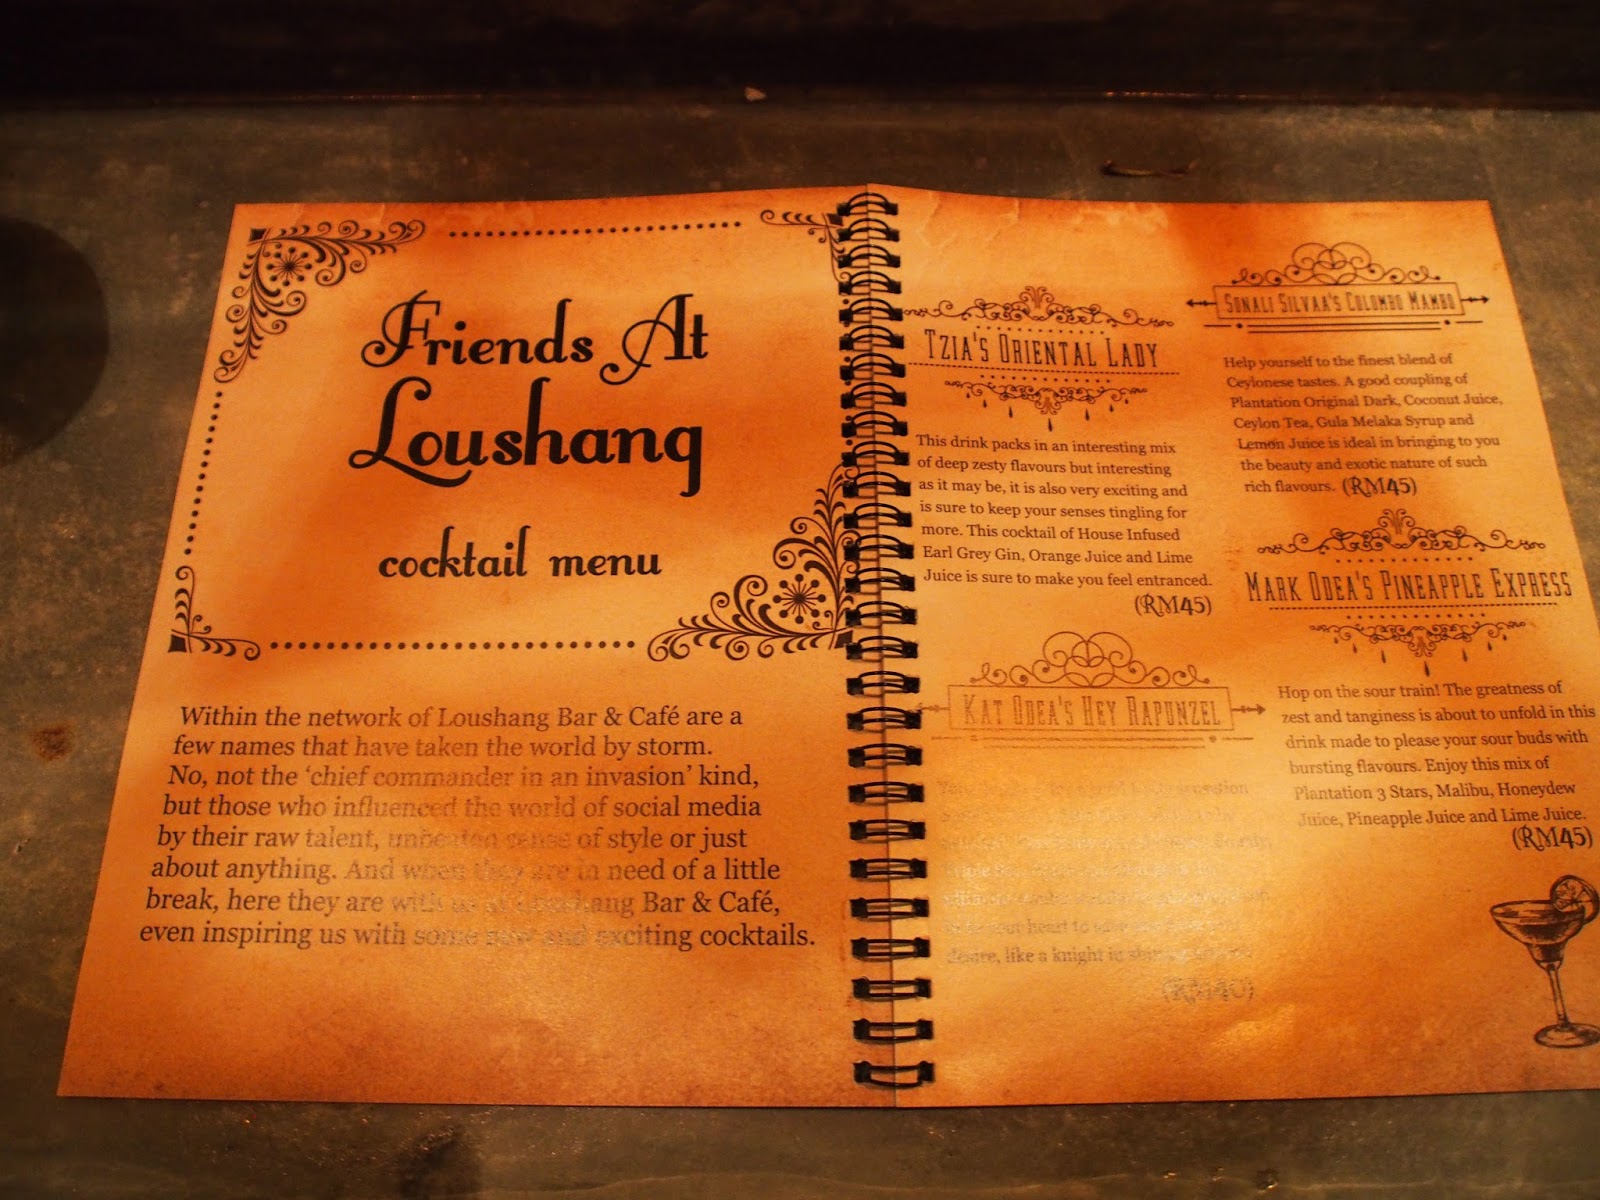 Friends At
Loushang
cocktail menu
Within the network of Loushang Bar & Café are a
few names that have taken the world by storm.
No, not the ‘chief commander in an invasion’ kind,
but those who influenced the world of social media
by their raw talent, unbeaten sense of style or just
about anything. And when they are in need of a little
break, here they are with us at Loushang Bar & Café,
even inspiring us with some new and exciting cocktails.
Tzia's Oriental Lady
This drink packs in an interesting mix
of deep zesty flavours but interesting
as it may be, it is also very exciting and
is sure to keep your senses tingling for
more. This cocktail of House Infused
Earl Grey Gin, Orange Juice and Lime
Juice is sure to make you feel entranced.
(RM45)
Kat Odea's Hey Rapunzel
heart to
desire, like a knight in
(RM40)
Sonali Silvaa's Colombo Mambo
Help yourself to the finest blend of
Ceylonese tastes. A good coupling of
Plantation Original Dark, Coconut Juice,
Ceylon Tea, Gula Melaka Syrup and
Lemon Juice is ideal in bringing to you
the beauty and exotic nature of such
rich flavours. (RM45)
Mark Odea's Pineapple Express
Hop on the sour train! The greatness of
zest and tanginess is about to unfold in this
drink made to please your sour buds with
bursting flavours. Enjoy this mix of
Plantation 3 Stars, Malibu, Honeydew
Juice, Pineapple Juice and Lime Juice.
(RM45)